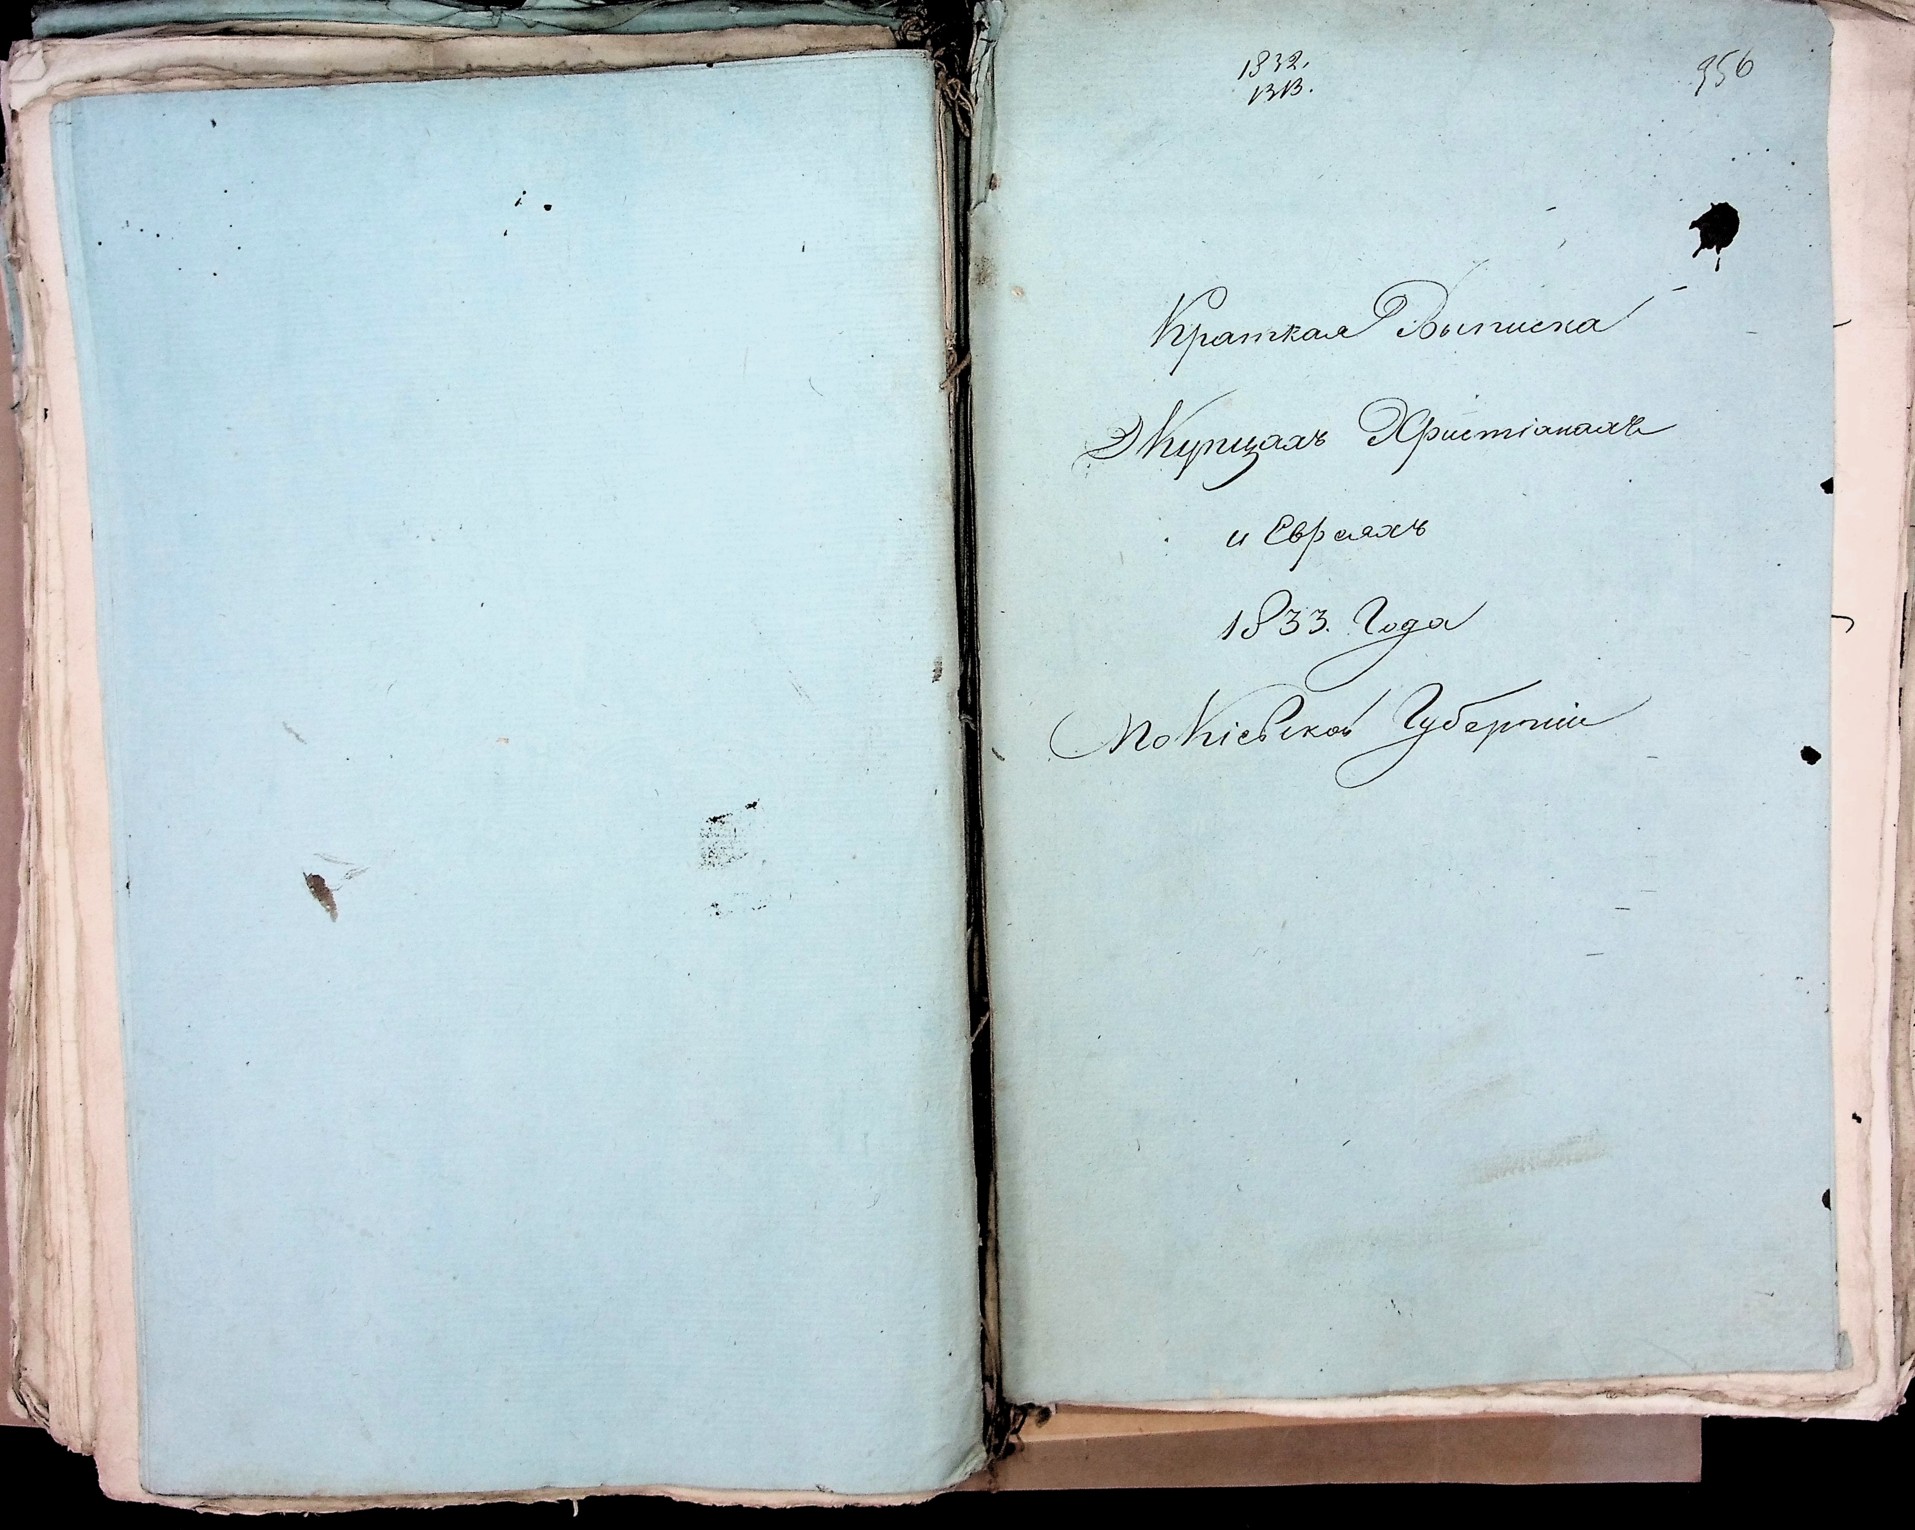 1832.
956
Краткая Выписка
О Купцахъ Христіанахъ
и Евреяхъ
1833. Года
По Кіевской Губерніи